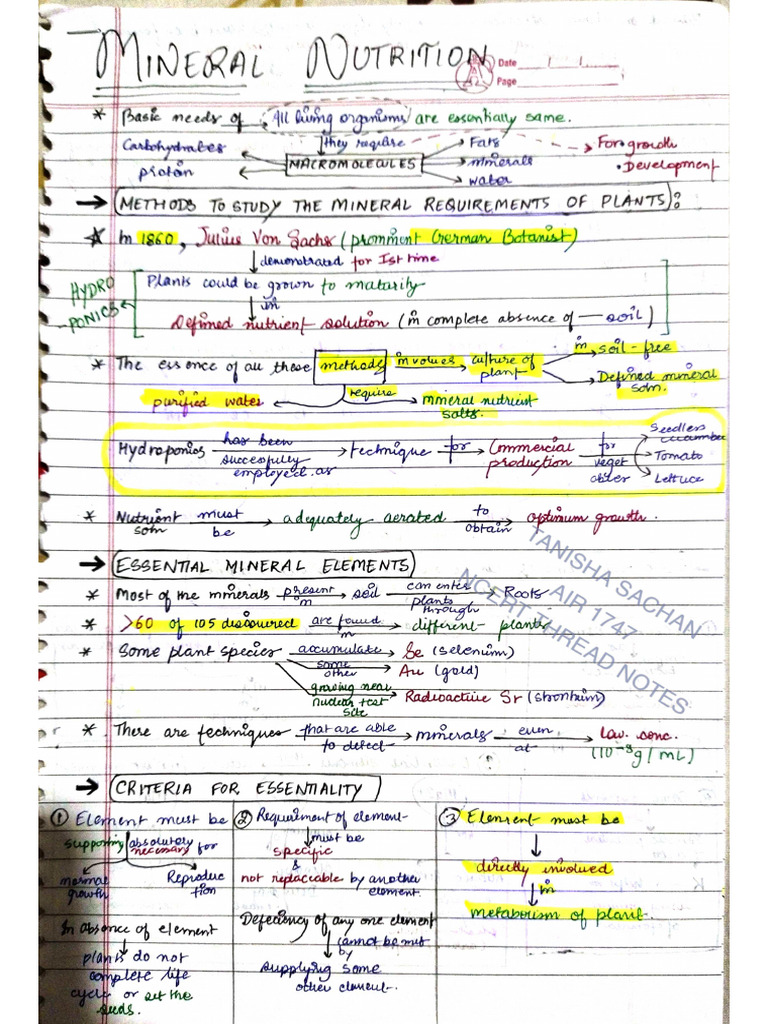 MINERAL NUTRITION
Date
Page
* Basic needs of All living organisms are essentially same.
Carbohydrates they require Fats For • growth
protein MACROMOLECULES minerals • Development
water
→ METHODS TO STUDY THE MINERAL REQUIREMENTS OF PLANTS :
* In 1860, Julius Von Sachs (prominent German Botanist)
demonstrated for Ist time
HYDROPONICS Plants could be grown to maturity
in
Defined nutrient solution (in complete absence of — soil)
* The essence of all these methods involves culture of plant in soil-free
Defined mineral soln.
require
purified water mineral nutrient salts.
Hydroponics has been successfully employed as technique for Commercial production for veget Seedless cucumber
Tomato
Lettuce
* Nutrient soln must be adequately aerated to obtain optimum growth.
→ ESSENTIAL MINERAL ELEMENTS
* Most of the minerals present in soil can enter plants through Roots
* >60 of 105 discovered are found in different plants
* Some plant species accumulate Se (selenium)
some other Au (gold)
growing near nuclear test site Radioactive Sr (strontium)
* There are techniques that are able to detect minerals even at low conc.
(10⁻⁸g/mL)
TANISHA SACHAN
AIR 1747
NCERT THREAD NOTES
→ CRITERIA FOR ESSENTIALITY
① Element must be
supporting absolutely necessary for
normal growth Reproduction
In absence of element
plants do not
complete life
cycle or set the
seeds.
② Requirement of element
must be
specific
&
not replaceable by another
element.
Deficiency of any one element
cannot be met
by
supplying some
other element.
③ Element must be
directly involved
in
metabolism of plant